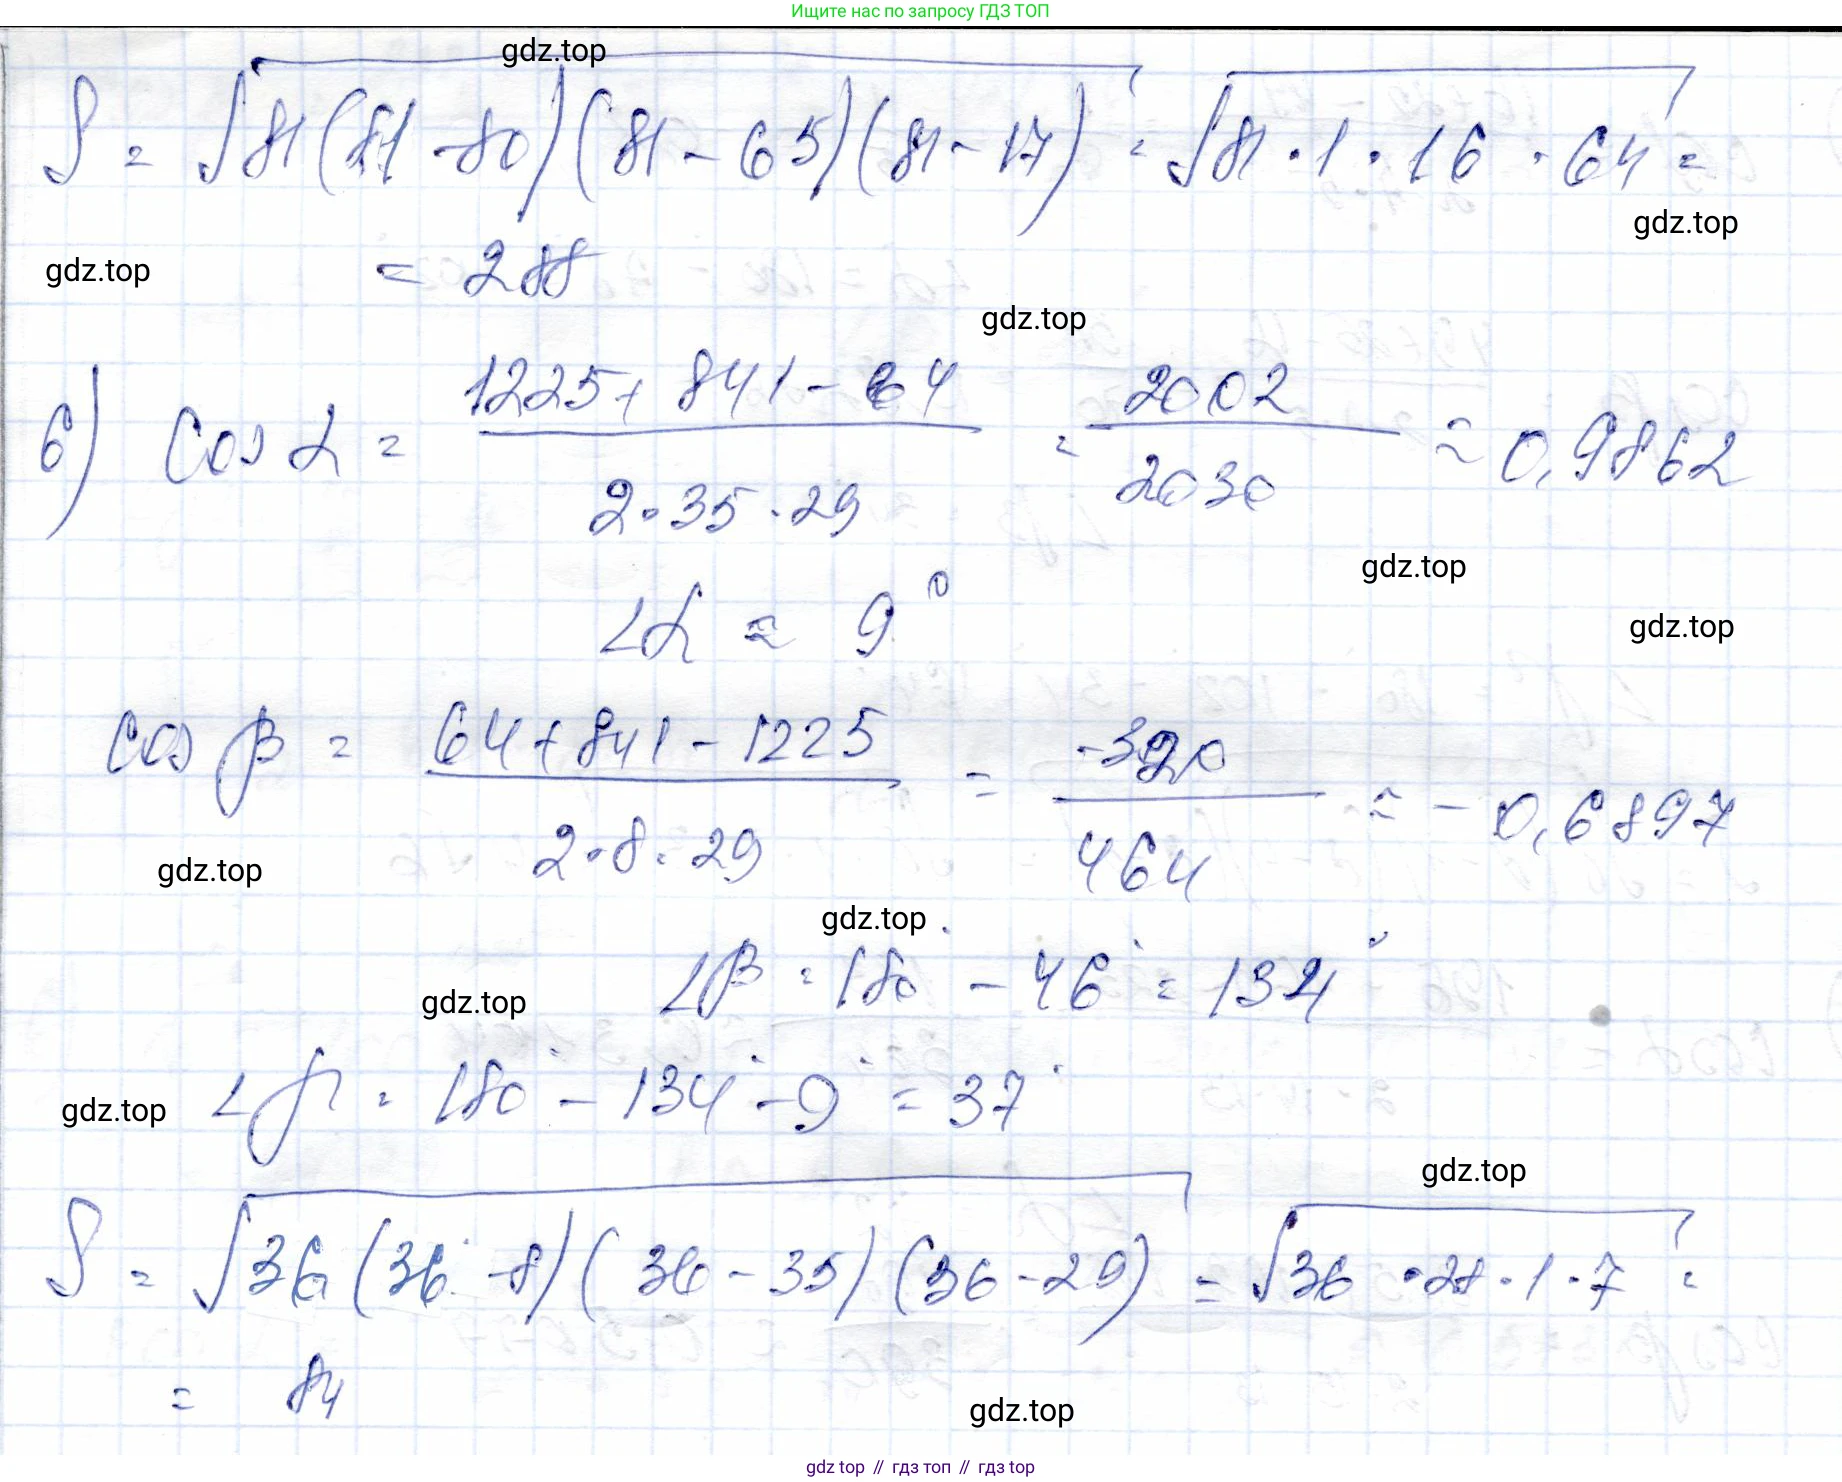 Ищите нас по запросу ГДЗ ТОП
gdz.top
S = √81(81-80)(81-65)(81-17) = √81·1·16·64 =
gdz.top
gdz.top
= 288
gdz.top
б) cos α = (1225+841-64)/(2·35·29) = 2002/2030 ≈ 0,9862
gdz.top
∠α ≈ 9°
gdz.top
cos β = (64+841-1225)/(2·8·29) = -320/464 ≈ -0,6897
gdz.top
gdz.top
∠β = 180° - 46° = 134°
gdz.top
∠γ = 180° - 134° - 9° = 37°
gdz.top
gdz.top
S = √36(36-8)(36-35)(36-29) = √36·28·1·7 =
= 84
gdz.top
gdz top // гдз топ // гдз top